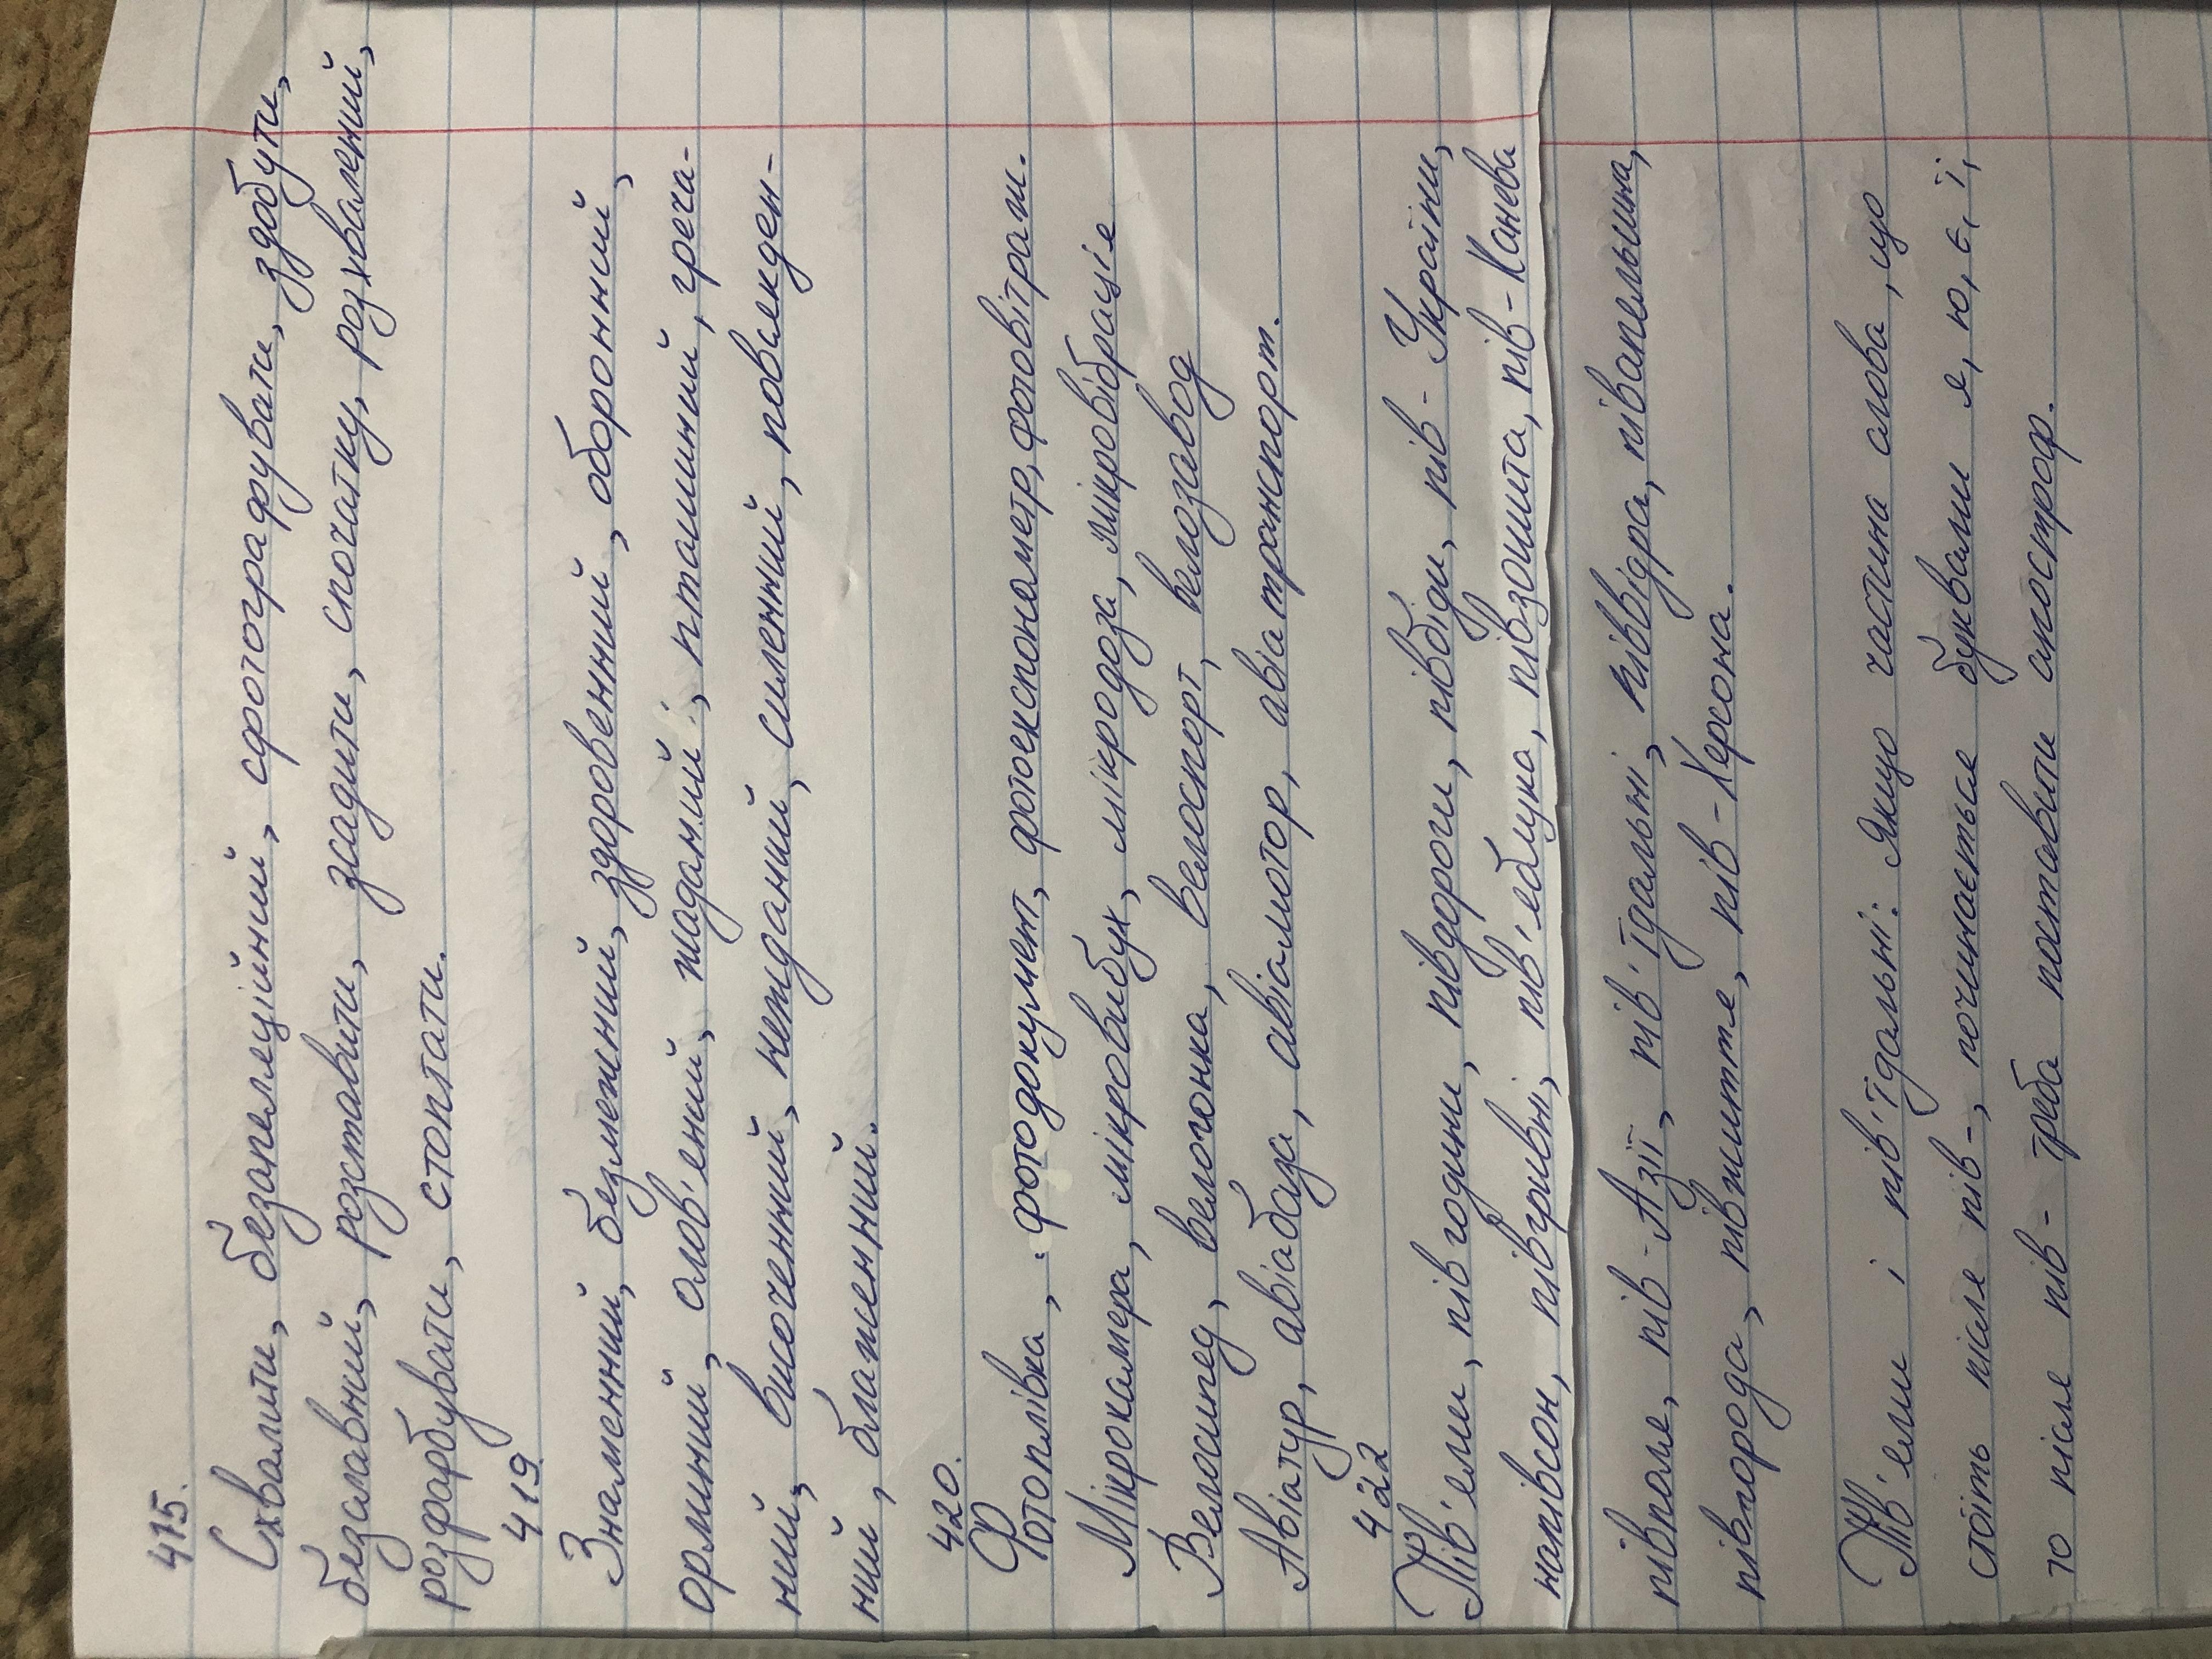 415.
Схвалити, безапеляційний, сфотографувати, здобути,
безславний, розставити, зсадити, спочатку, розхвалений,
розфарбувати, стоптати.
419
Знаменний, безмежний, здоровенний, оборонний,
орлиний, олов'яний, жаданий, пташиний, греча-
ний, височенний, нежданий, силенний, повсякден-
ний, блаженний.
420.
Фотоплівка, фотодокумент, фотоекспонометр, фотовітраж.
Мікрокамера, мікровибух, мікродоза, мікровібрація
Велосипед, велогонка, велоспорт, велозавод
Авіатур, авіабаза, авіамотор, авіатранспорт.
422
Пів'ями, півгодини, півдороги, півбіди, пів-України,
напівсон, півгривні, пів'яблука, півзошита, пів-Канева
півполя, пів-Азії, пів'їдальні, піввідра, півапельсина,
півгорода, півжиття, пів-Херсона.
Пів'ями і пів'їдальні: Якщо частина слова, що
стоїть після пів-, починається буквами я, ю, є, ї,
то після пів- треба поставити апостроф.